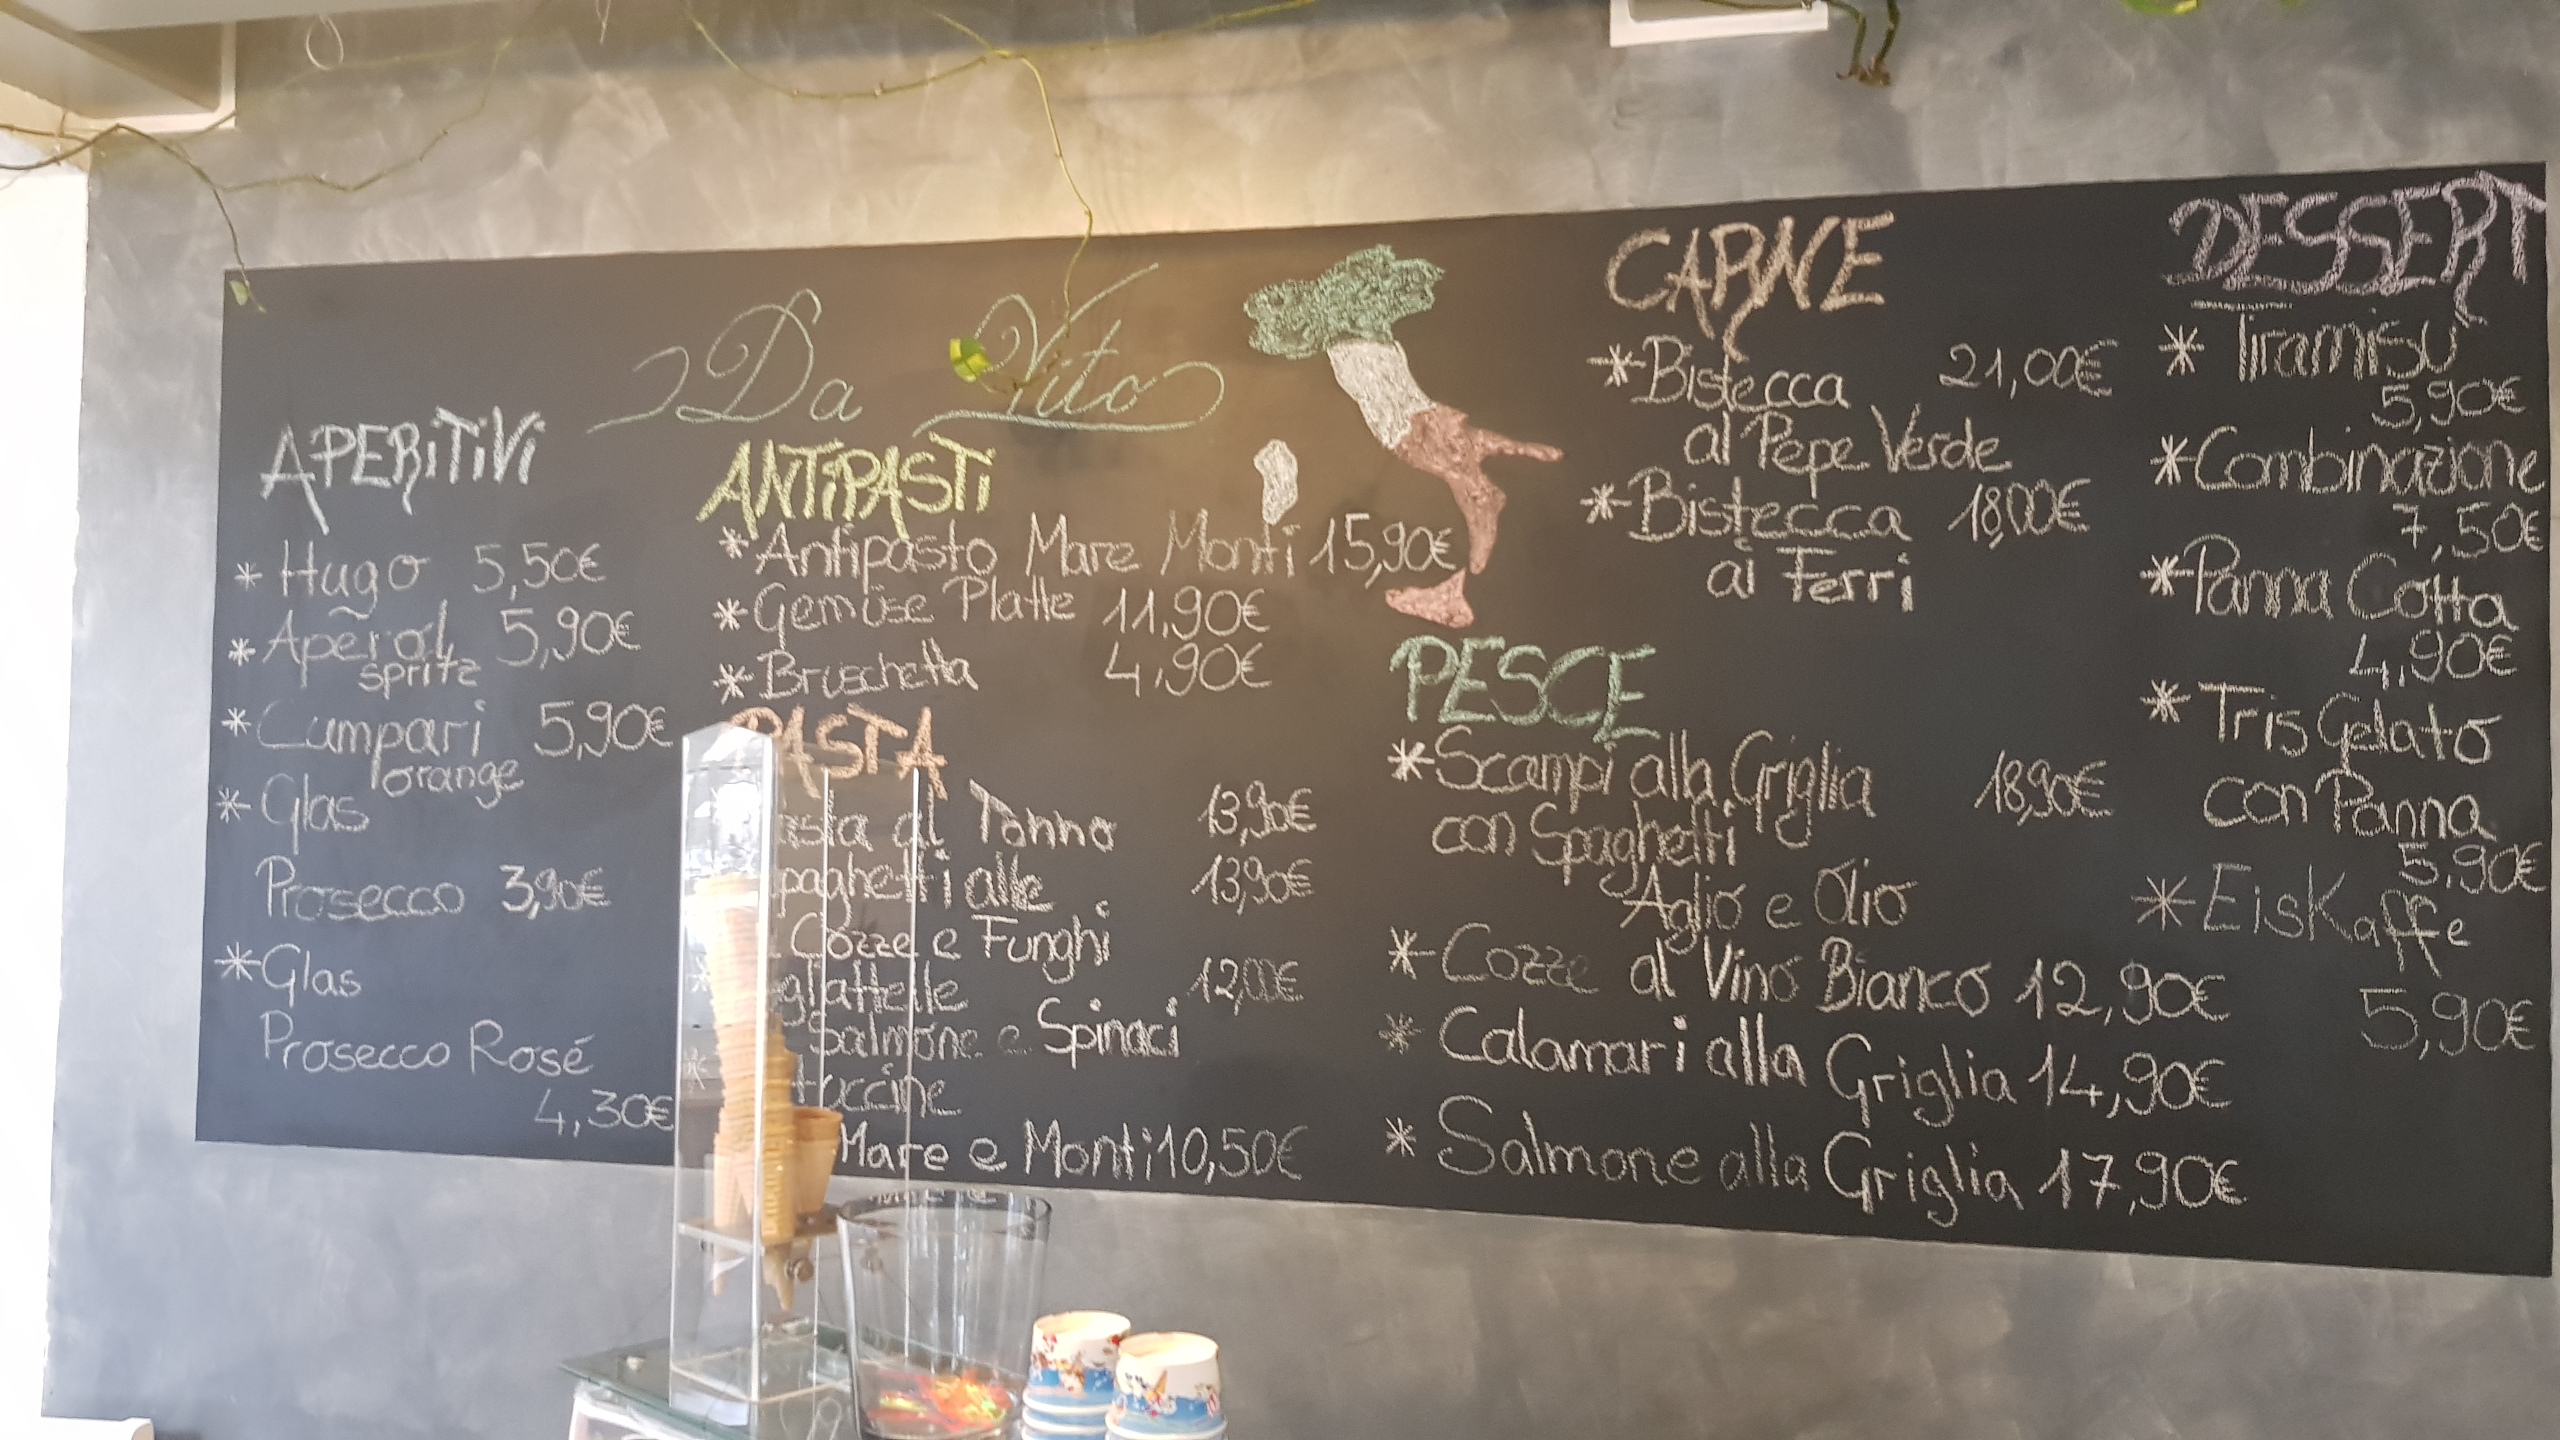 Da Vito
APERITIVI
* Hugo 5,50€
* Aperol 5,90€
spritz
* Campari 5,90€
orange
* Glas
Prosecco 3,90€
* Glas
Prosecco Rosé
4,30€
ANTIPASTI
* Antipasto Mare Monti 15,90€
* Gemüse Platte 11,90€
* Bruschetta 4,90€
PASTA
al Tonno 13,90€
alle 13,90€
Cozze e Funghi
12,00€
Salmone e Spinaci
Mare e Monti 10,50€
CARNE
* Bistecca 21,00€
al Pepe Verde
* Bistecca 18,00€
ai Ferri
PESCE
* Scampi alla Griglia 18,90€
con Spaghetti
Aglio e Olio
* Cozze al Vino Bianco 12,90€
* Calamari alla Griglia 14,90€
* Salmone alla Griglia 17,90€
DESSERT
* Tiramisù
5,90€
* Combinazione
7,50€
* Panna Cotta
4,90€
* Tris Gelato
con Panna
5,90€
* Eiskaffe
5,90€